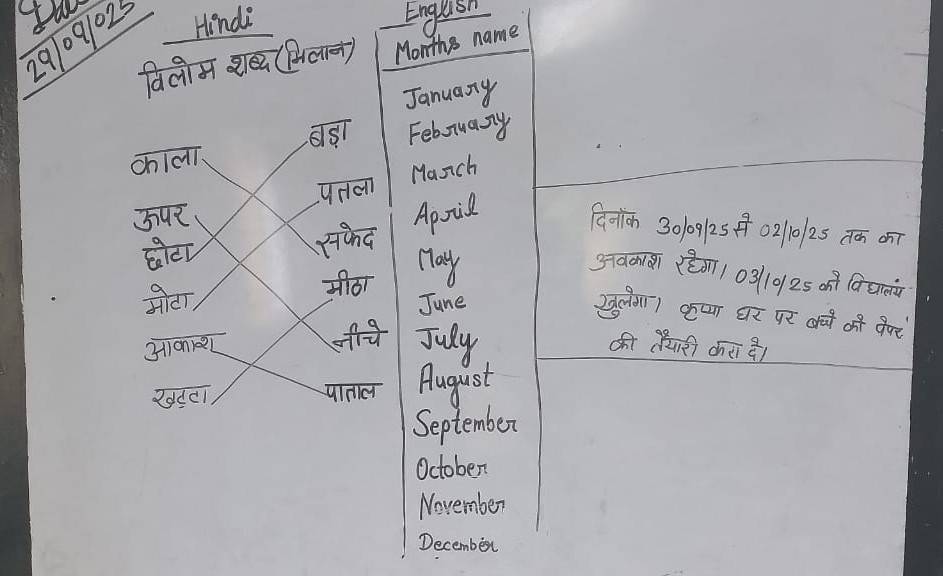 29/09/025
Hindi
विलोम शब्द (मिलान)
काला
ऊपर
छोटा
मोटा
आकाश
खट्टा
बड़ा
पतला
सफेद
मीठा
नीचे
पाताल
English
Months name
January
February
March
April
May
June
July
August
September
October
November
December
दिनाँक 30/09/25 से 02/10/25 तक का
अवकाश रहेगा। 03/10/25 को विद्यालय
खुलेगा। कृप्या घर पर बच्चे को पेपर
की तैयारी करा दे।